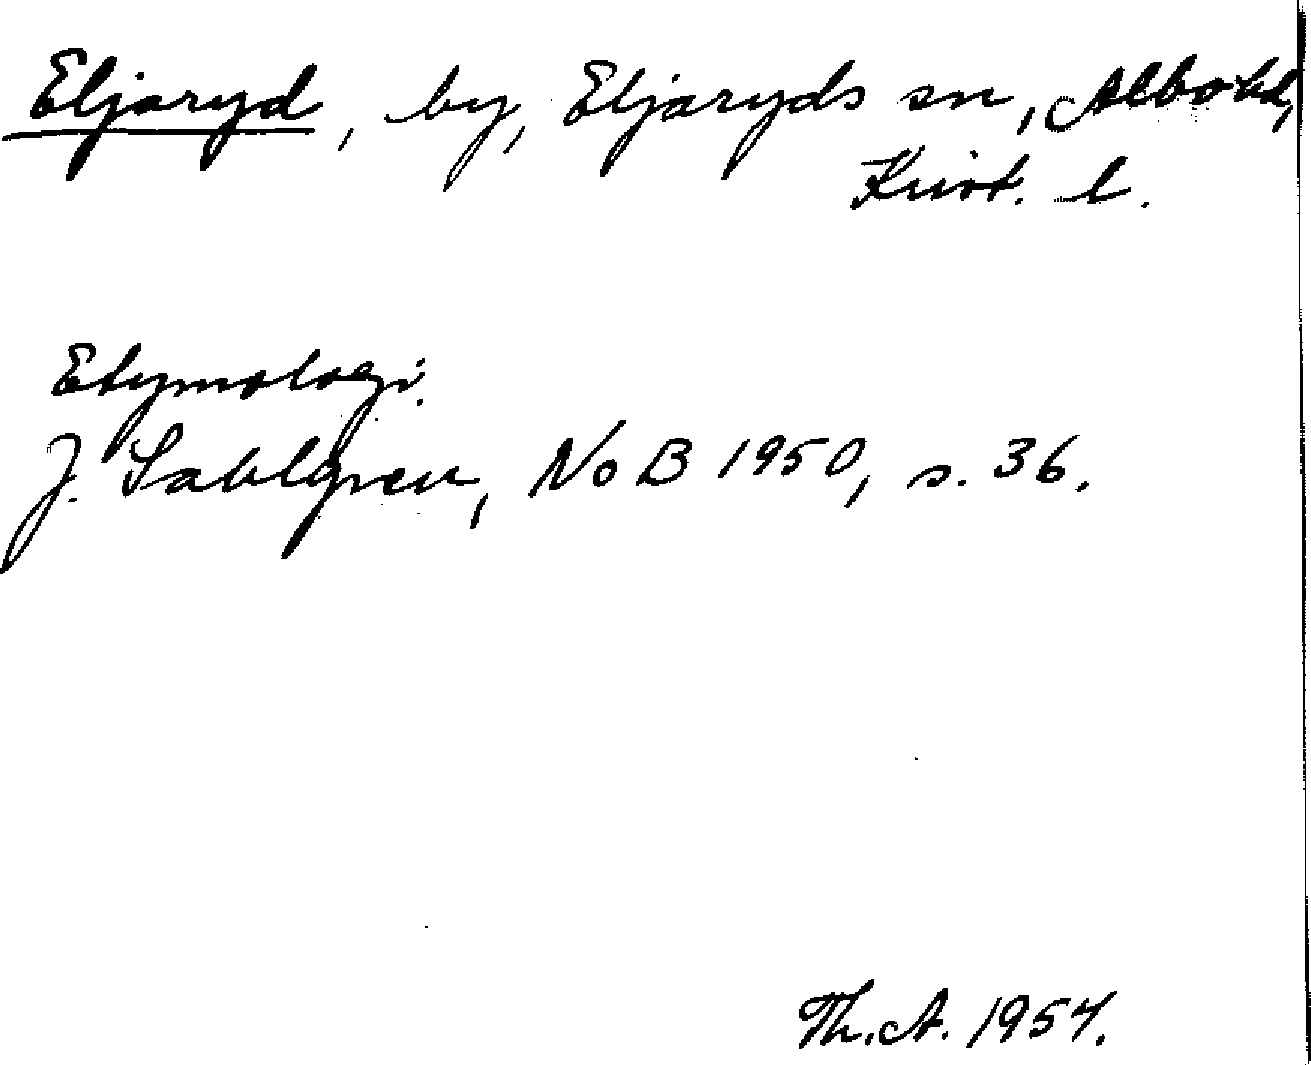 Eljaryd, by, Eljaryds sn, Albo hd,
Krist. l.
Etymologi.
J. Sahlgren, NoB 1950, s. 36.
Th. A. 1954.